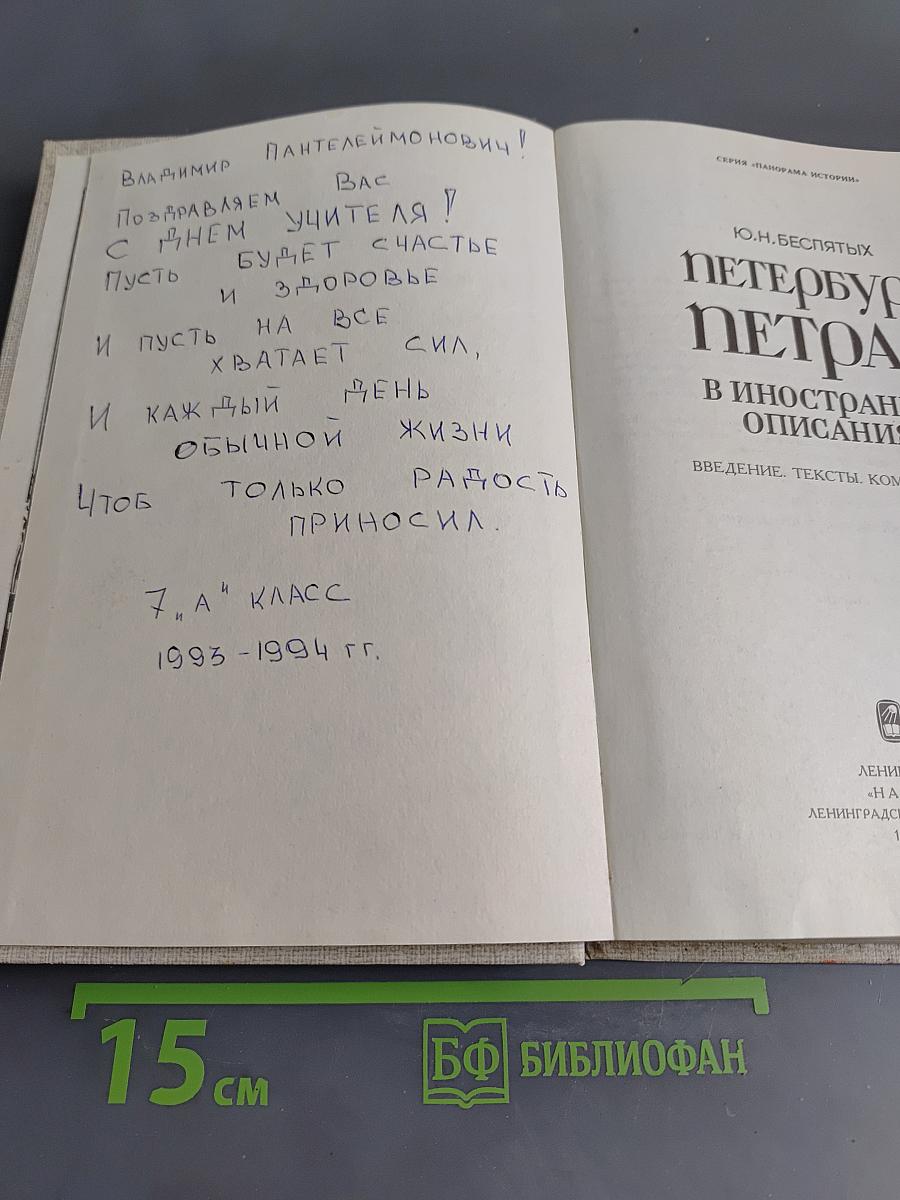 Владимир Пантелеймонович!
Поздравляем Вас
с Днем учителя!
Пусть будет счастье
и здоровье
И пусть на все
хватает сил,
И каждый день
обычной жизни
Чтоб только радость
приносил.
7 „А" класс
1993-1994 гг.
СЕРИЯ «ПАНОРАМА ИСТОРИИ»
Ю.Н.БЕСПЯТЫХ
ПЕТЕРБУР
ПЕТРА
В ИНОСТРАН
ОПИСАНИЯ
ВВЕДЕНИЕ. ТЕКСТЫ. КОМ
ЛЕНИН
«НА
ЛЕНИНГРАДСК
1
15 см
БФ БИБЛИОФАН